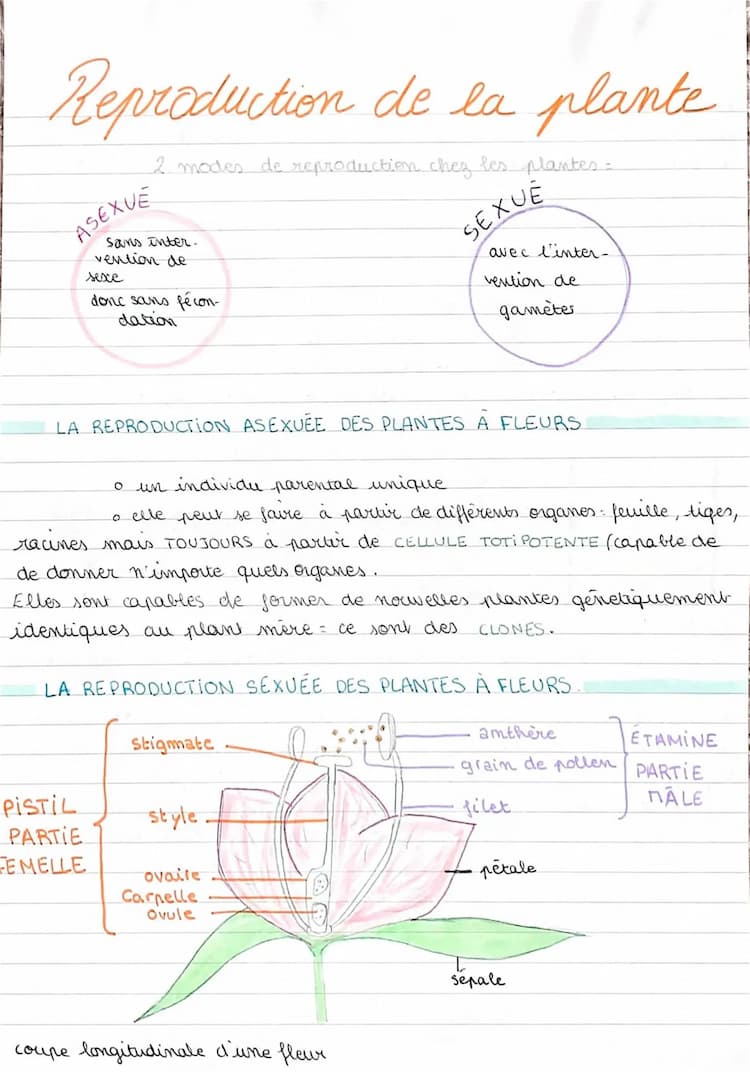 Reproduction de la plante
2 modes de reproduction chez les plantes :
ASEXUÉ
sans inter-
vention de
sexe
donc sans fécon-
dation
SEXUÉ
avec l'inter-
vention de
gamètes
LA REPRODUCTION ASEXUÉE DES PLANTES À FLEURS
o un individu parental unique
o elle peut se faire à partir de différents organes : feuille, tiges,
racines mais TOUJOURS à partir de CELLULE TOTIPOTENTE (capable de
de donner n'importe quels organes.
Elles sont capables de former de nouvelles plantes génétiquement
identiques au plant mère = ce sont des CLONES.
LA REPRODUCTION SEXUÉE DES PLANTES À FLEURS.
PISTIL
PARTIE
FEMELLE
stigmate
style
ovaire
Carpelle
ovule
anthère
grain de pollen
filet
ÉTAMINE
PARTIE
MÂLE
pétale
sépale
coupe longitudinale d'une fleur